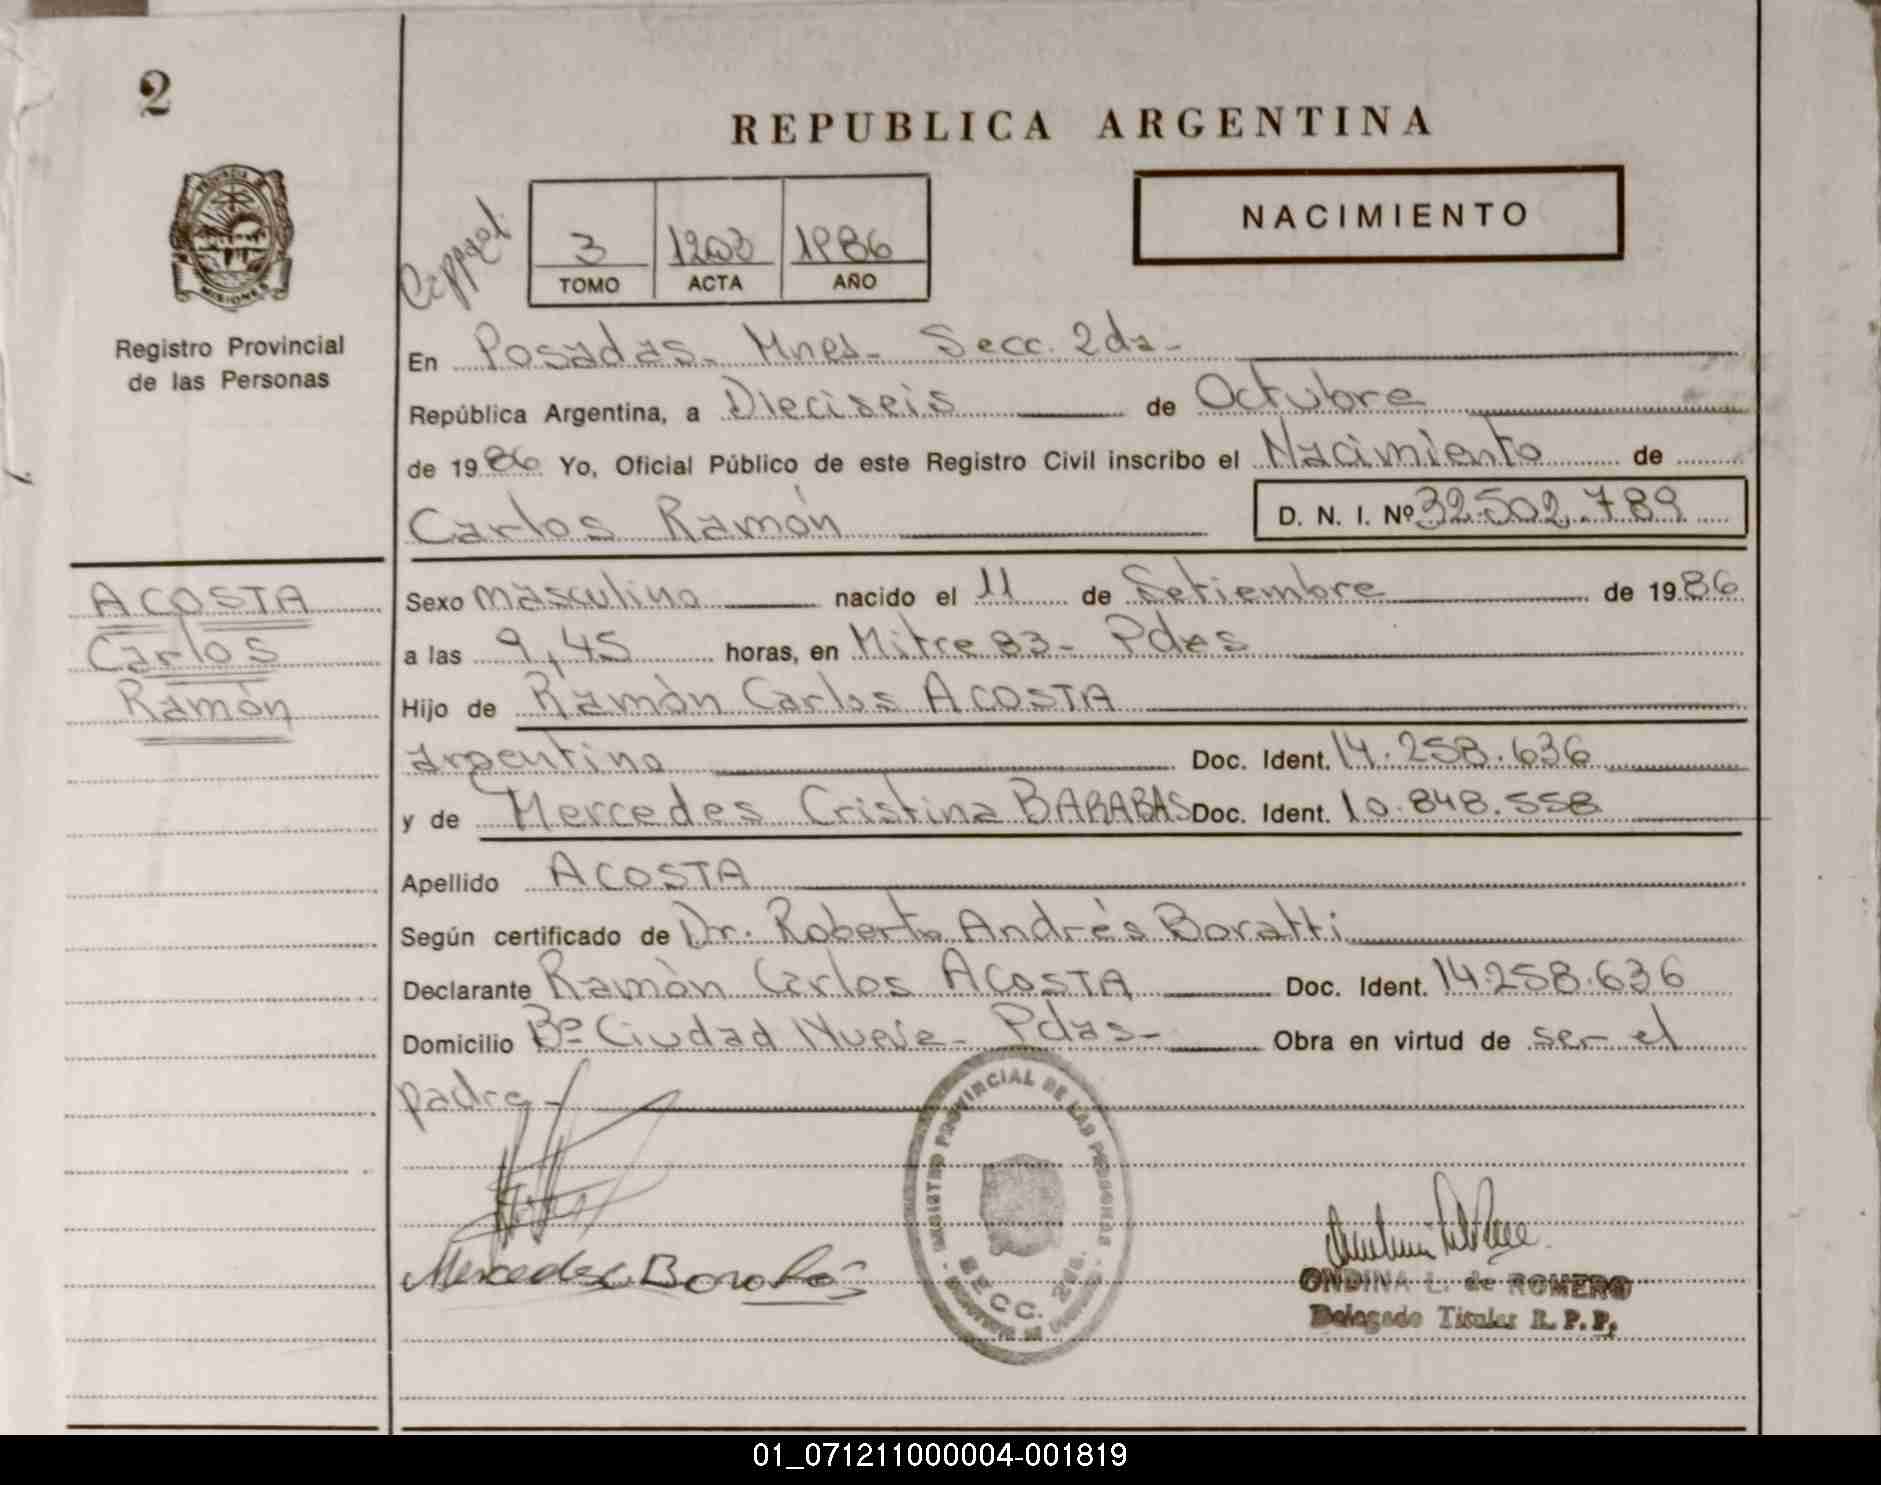 2
REPUBLICA ARGENTINA
NACIMIENTO
3 1203 1986
TOMO ACTA AÑO
PROVINCIA DE
MISIONES
Registro Provincial
de las Personas
En Posadas- Mnes- Secc. 2da-
República Argentina, a Dieciseis de Octubre
de 1986 Yo, Oficial Público de este Registro Civil inscribo el Nacimiento de
Carlos Ramón D. N. I. Nº 32.502.789
ACOSTA
Carlos
Ramón
Sexo masculino nacido el 11 de Setiembre de 1986
a las 9,45 horas, en Mitre 83- Pdas
Hijo de Ramón Carlos ACOSTA
argentino Doc. Ident. 14.258.636
y de Mercedes Cristina BARABAS Doc. Ident. 10.848.558
Apellido ACOSTA
Según certificado de Dr. Roberto Andrés Boratti
Declarante Ramón Carlos ACOSTA Doc. Ident. 14.258.636
Domicilio Bº Ciudad Nueva- Pdas- Obra en virtud de ser el
padre-
REGISTRO PROVINCIAL DE LAS PERSONAS
SECC. 2da.
Mercedes Barabás
ONDINA L. de ROMERO
Delegado Titular R. P. P.
01_071211000004-001819